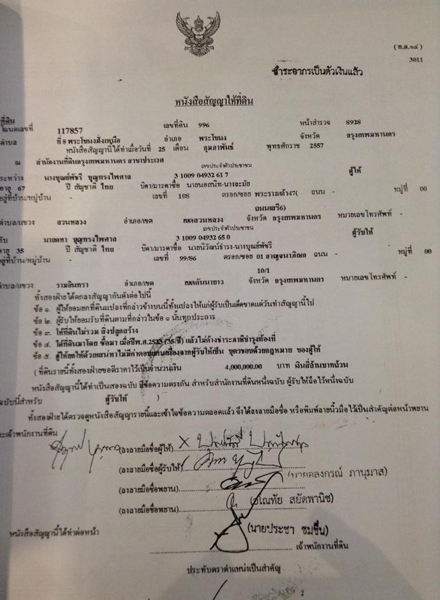 ( ท.ด.๑๔ )
3011
ชำระอากรเป็นตัวเงินแล้ว
หนังสือสัญญาให้ที่ดิน
ที่ดิน
โฉนดเลขที่ 117857 เลขที่ดิน 996 หน้าสำรวจ 8928
ตำบล ที่ 8 พระโขนงฝั่งเหนือ อำเภอ พระโขนง จังหวัด กรุงเทพมหานคร
หนังสือสัญญานี้ได้ทำเมื่อวันที่ 25 เดือน กุมภาพันธ์ พุทธศักราช 2557
ณ สำนักงานที่ดินกรุงเทพมหานคร สาขาประเวศ
เลขประจำตัวประชาชน
ระหว่าง 3 1009 04932 61 7 ผู้ให้
อายุ 67 ปี สัญชาติ ไทย บิดา/มารดาชื่อ
อยู่ที่บ้าน/หมู่บ้าน เลขที่ 108 ตรอก/ซอย ถนน - หมู่ที่ 00
ถนน
ตำบล/แขวง สวนหลวง อำเภอ/เขต เขตสวนหลวง จังหวัด กรุงเทพมหานคร หมายเลขโทรศัพท์ -
เลขประจำตัวประชาชน
กับ 3 1009 04932 65 0 ผู้รับให้
อายุ 35 ปี สัญชาติ ไทย บิดา/มารดาชื่อ
อยู่ที่บ้าน/หมู่บ้าน เลขที่ 99/86 ตรอก/ซอย 01 กาญจนาภิเษก ถนน - หมู่ที่ 00
10/1
ตำบล/แขวง รามอินทรา อำเภอ/เขต เขตคันนายาว จังหวัด กรุงเทพมหานคร หมายเลขโทรศัพท์ -
ทั้งสองฝ่ายได้ตกลงสัญญากันดังต่อไปนี้
ข้อ ๑. ผู้ให้ยอมยกที่ดินแปลงที่กล่าวข้างบนนี้ทั้งแปลงให้แก่ผู้รับเป็นเด็ดขาดแต่วันทำสัญญานี้ไป
ข้อ ๒. ผู้รับให้ยอมรับที่ดินตามที่กล่าวในข้อ ๑ นั้นทุกประการ
ข้อ ๓. ให้ที่ดินไม่รวม สิ่งปลูกสร้าง
ข้อ ๔. ที่ดินได้มาโดย ซื้อมา เมื่อปีพ.ศ.2535 ไม่ค้างชำระภาษีบำรุงท้องที่
ข้อ ๕. บุตรชอบด้วยกฎหมาย ของผู้ให้
( ที่ดินรายนี้ทั้งสองฝ่ายขอตีราคาไว้เป็นจำนวนเงิน 4,000,000.00 บาท เงินสี่ล้านบาทถ้วน
หนังสือสัญญานี้ได้ทำเป็นสองฉบับ มีข้อความตรงกัน สำหรับสำนักงานที่ดินหนึ่งฉบับ ผู้รับให้ถือไว้หนึ่งฉบับ
ฉบับนี้สำหรับ ผู้รับให้ )
ทั้งสองฝ่ายได้ตรวจดูหนังสือสัญญารายนี้และเข้าใจข้อความตลอดแล้ว จึงได้ลงลายมือชื่อ หรือพิมพ์ลายนิ้วมือ ไว้เป็นสำคัญต่อหน้าพยาน
และเจ้าพนักงานที่ดิน
(ลงลายมือชื่อผู้ให้) X
(ลงลายมือชื่อผู้รับให้)
(ลงลายมือชื่อพยาน) ภานุมาส)
(ลงลายมือชื่อพยาน) สยัดพานิช)
หนังสือสัญญานี้ได้ทำต่อหน้า (นายประชา ชมชื่น)
เจ้าพนักงานที่ดิน
ประทับตราตำแหน่งเป็นสำคัญ